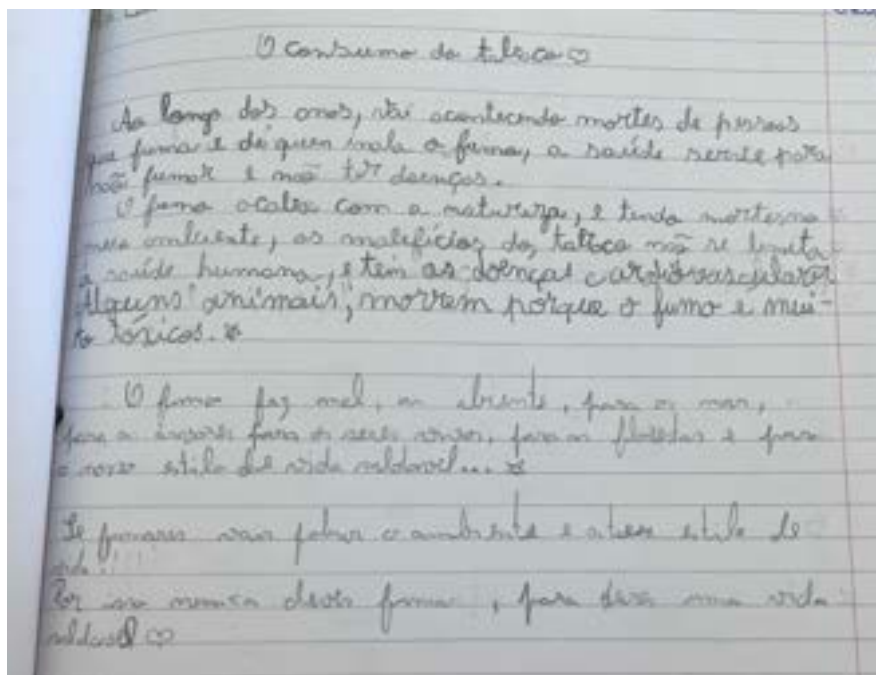 O consumo do tabaco ♡
Ao longo dos anos, vai acontecendo mortes de pessoas
que fuma e de quem inala o fumo, a saúde serve para
não fumar e não ter doenças.
O fumo acaba com a natureza, e tendo mortes no
meio ambiente, os malefícios do tabaco não se limita
a saúde humana, e tem as doenças cardiovasculares
Alguns animais, morrem porque o fumo e mui-
to tóxicos.
O fumo faz mal, ao, para o mar,
para a para os seres vivos, para as florestas e para
o nosso estilo de vida
Se fumares vais o ambiente e a teu estilo de
vida!!!
Por isso nunca deves fumar, para uma vida
♡